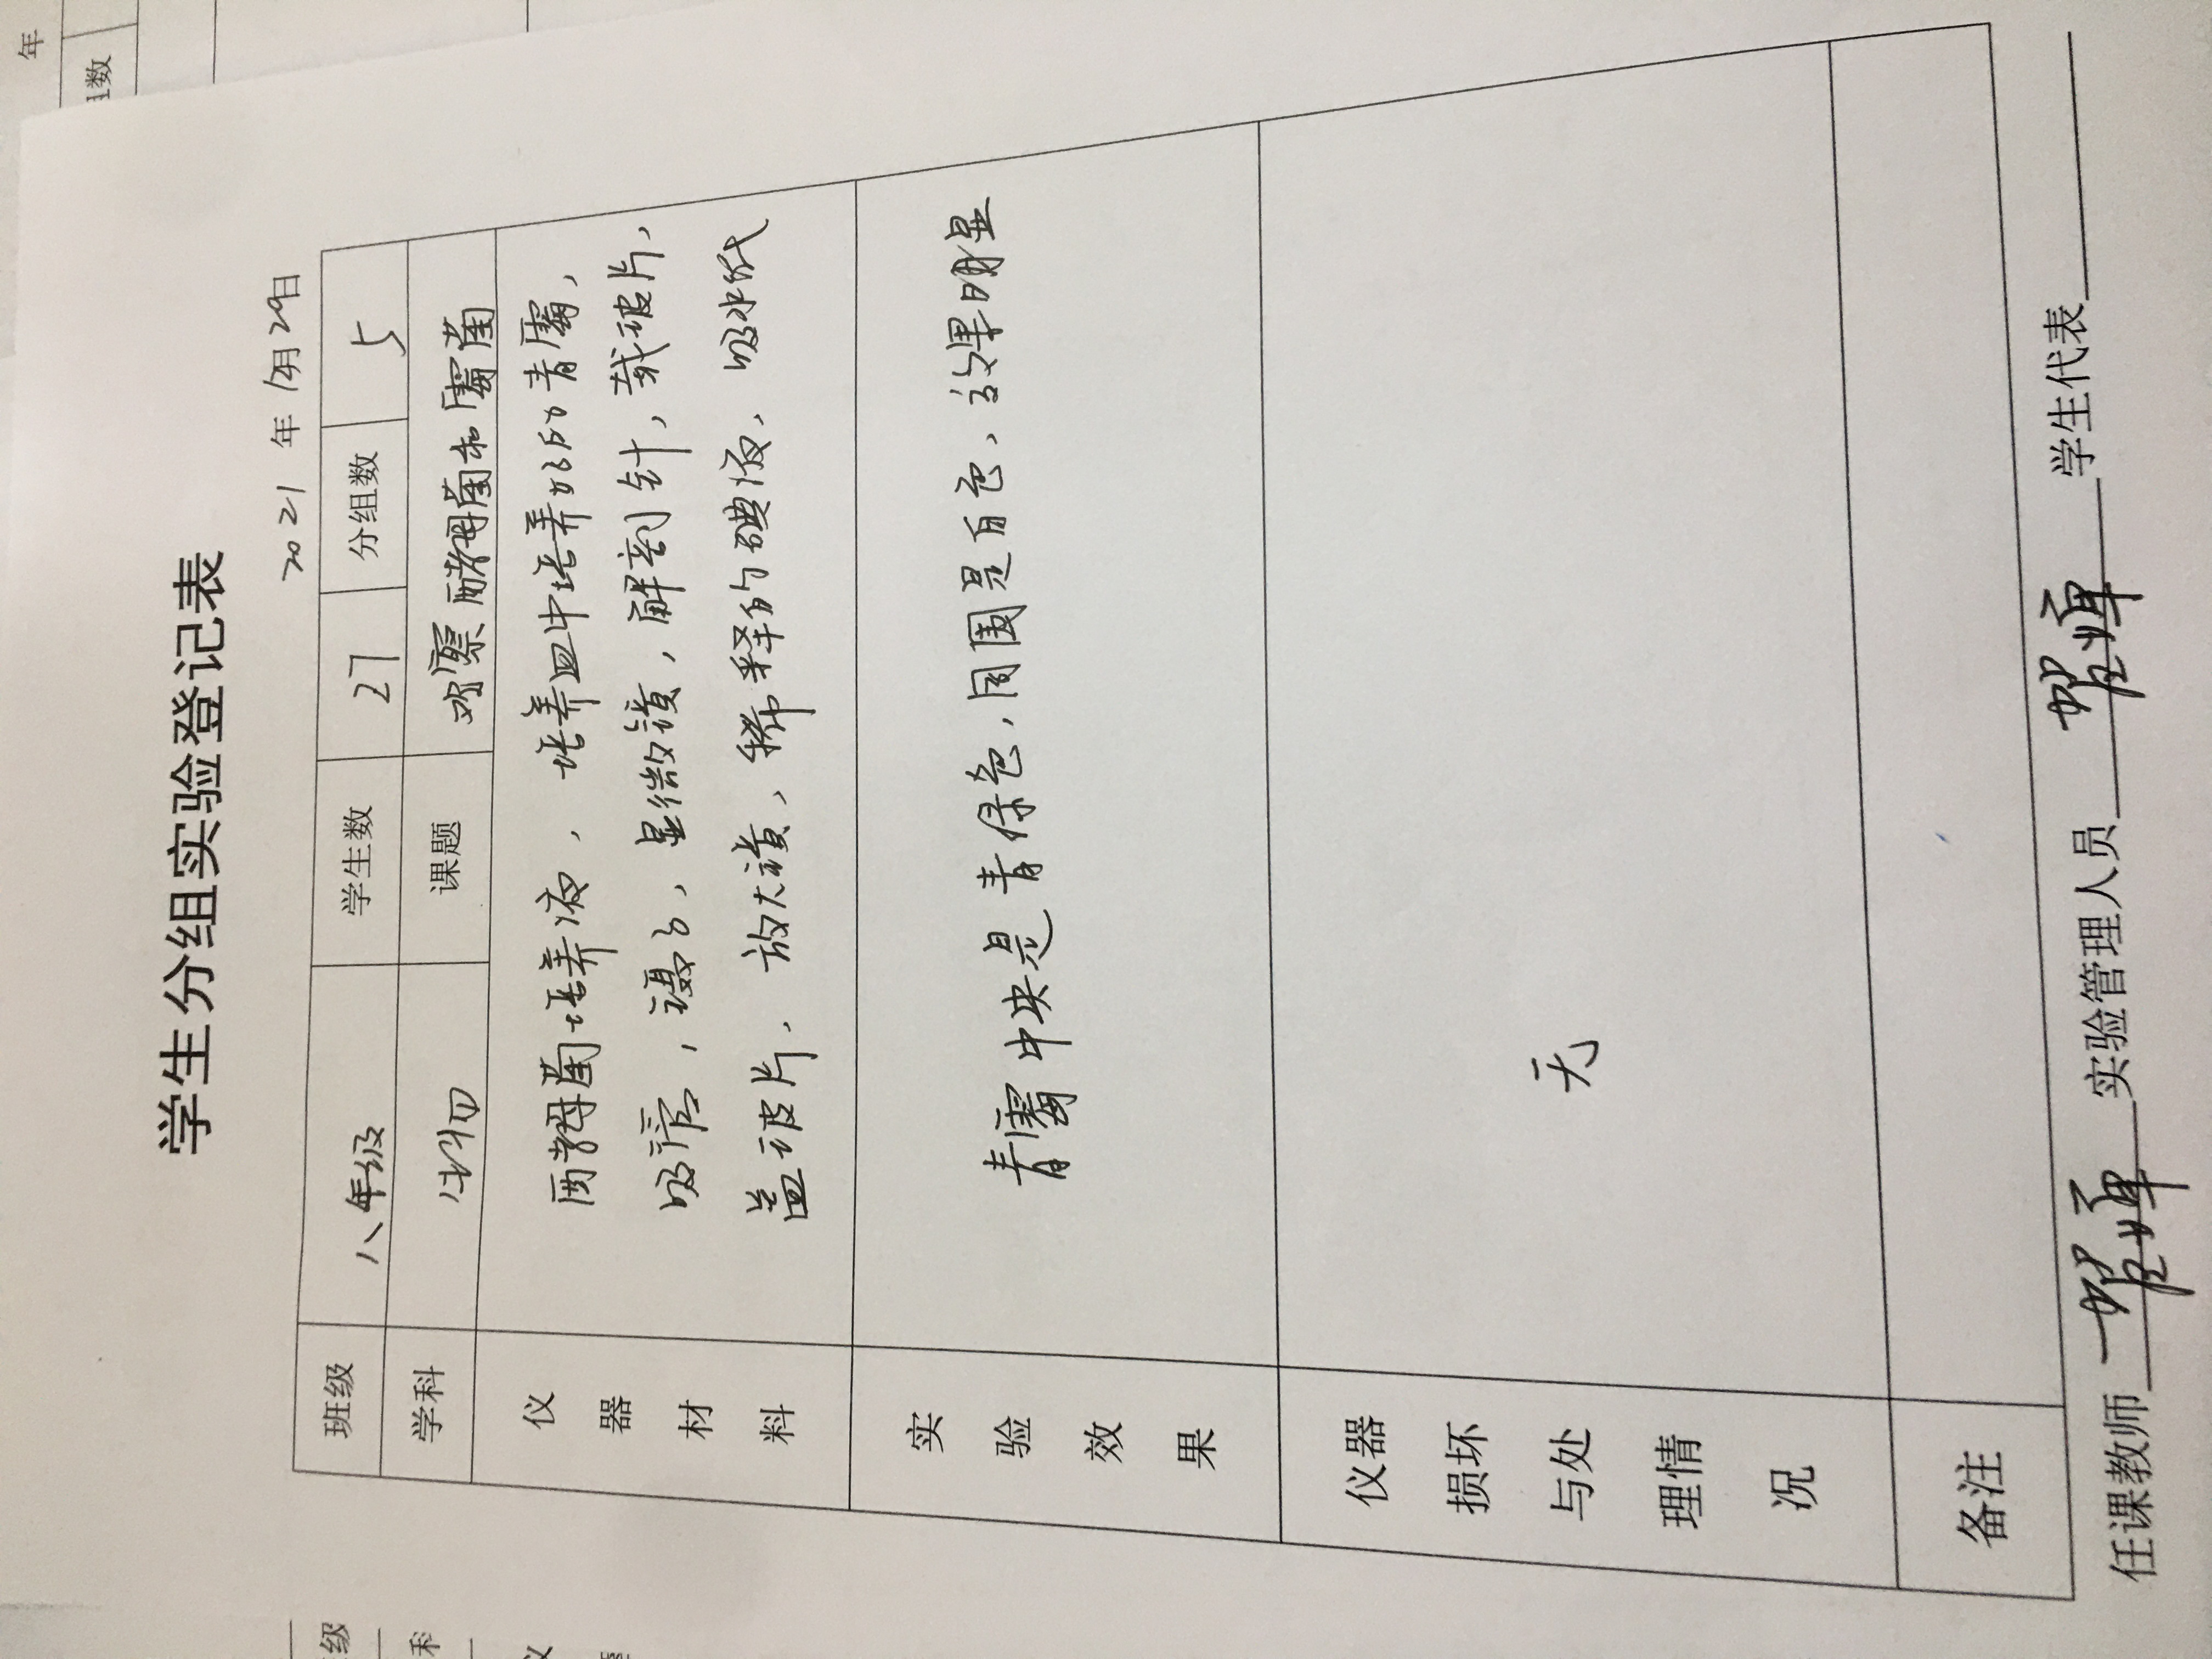 学生分组实验登记表
2021 年 1月 29日
班级 八年级 学生数 27 分组数 5
学科 生物 课题 观察酵母菌和霉菌
仪器材料
酵母菌培养液，培养皿中培养好的青霉，
吸管，镊子，显微镜，解剖针，载玻片，
盖玻片、放大镜、稀释的碘液、吸水纸
实验效果
青霉中央是青绿色，周围是白色、效果明显
仪器损坏与处理情况
无
备注
任课教师 实验管理人员 学生代表
年
数
级
科
仪